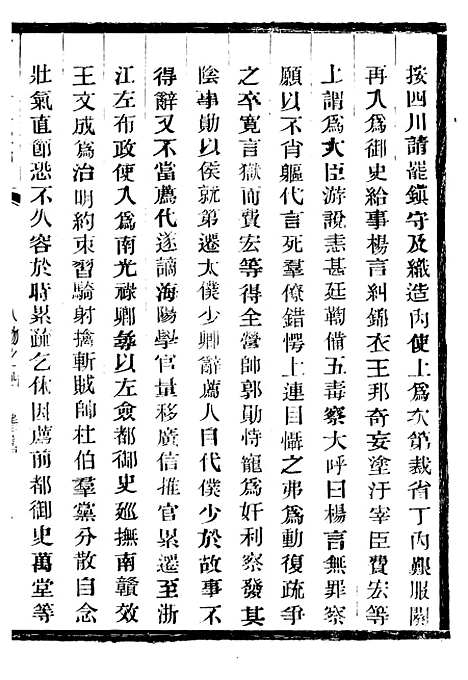 按四川請罷鎮守及織造內使上為次第裁省丁內艱服闋
再入為御史給事楊言糾錦衣王邦奇妄塗汙宰臣費宏等
上謂為大臣游說恚甚廷鞫備五毒察大呼曰楊言無罪察
願以不肖軀代言死羣僚錯愕上連目懾之弗為動復疏爭
之卒寬言獄而費宏等得全營帥郭勛恃寵為奸利察發其
陰事勛以侯就第遷太僕少卿辭薦人自代僕少於故事不
得辭又不當薦代遂謫海陽學官量移廣信推官累遷至浙
江左布政使入為南光祿卿尋以左僉都御史廵撫南贛效
王文成為治明約束習騎射擒斬賊帥杜伯羣黨分散自念
壯氣直節恐不久容於時累疏乞休因薦前都御史萬堂等
人物之